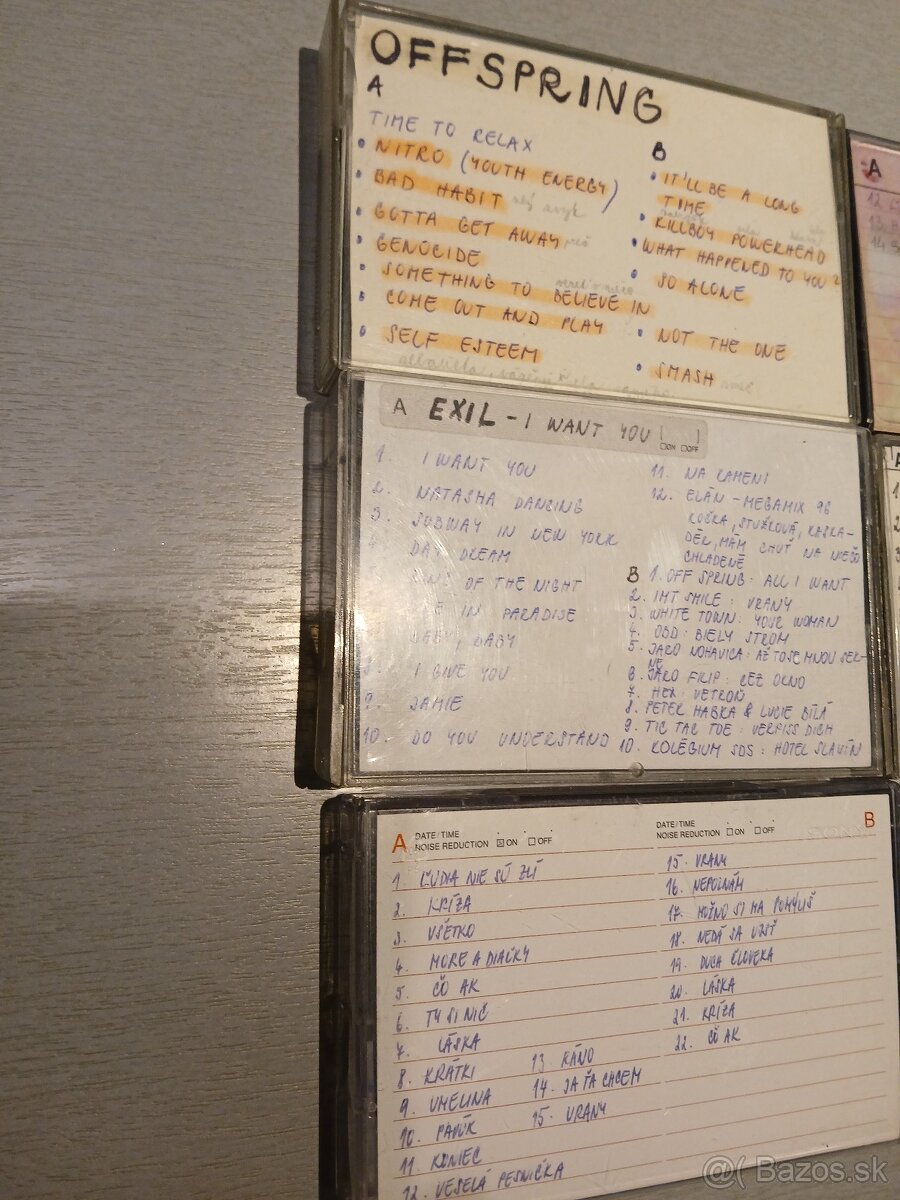 OFFSPRING
A
TIME TO RELAX
• NITRO (YOUTH ENERGY)
• BAD HABIT
• GOTTA GET AWAY
• GENOCIDE
• SOMETHING TO BELIEVE IN
• COME OUT AND PLAY
• SELF ESTEEM
B
• IT'LL BE A LONG
TIME
• KILLBOY POWERHEAD
• WHAT HAPPENED TO YOU?
• SO ALONE
• NOT THE ONE
• SMASH
A EXIL - I WANT YOU
□ON □OFF
1. I WANT YOU
2. NATASHA DANCING
3. SUBWAY IN NEW YORK
4. DAY DREAM
OF THE NIGHT
IN PARADISE
BABY, BABY
8. I GIVE YOU
9. JAMIE
10. DO YOU UNDERSTAND
11. NA KAMENI
12. ELÁN - MEGAMIX 96
KOŠKA, STUŽKOVÁ, KASKA-
DÉR, MÁM CHUŤ NA NIEČO
CHLADENÉ
B 1. OFF SPRING: ALL I WANT
2. IMT SMILE: VRANY
3. WHITE TOWN: YOUR WOMAN
4. OBD: BIELY STROM
5. JARO NOHAVICA: AŽ TO SE MNOU SEK-
NE
6. JARO FILIP: CEZ OKNO
7. HEX: VETROŇ
8. PETER HABKA & LUCIE BÍLÁ
9. TIC TAC TOE: VERPISS DICH
10. KOLÉGIUM SDS: HOTEL SLAVÍN
A DATE/TIME
NOISE REDUCTION ☒ON □OFF
DATE/TIME
NOISE REDUCTION □ON □OFF
B
1. ĽUDIA NIE SÚ ZLÍ
2. KRÍZA
3. VŠETKO
4. MORE A DIAĽKY
5. ČO AK
6. TY SI NIČ
7. LÁSKA
8. KRÁTKI
9. UMELINA
10. PAVÚK
11. KONIEC
12. VESELÁ PESNIČKA
13. RÁNO
14. JA ŤA CHCEM
15. VRANY
15. VRANY
16. NEPOZNÁM
17. MOŽNO SI MA POMÝLIŠ
18. NEDÁ SA UJSŤ
19. DUŠA ČLOVEKA
20. LÁSKA
21. KRÍZA
22. ČO AK
A
A
@( Bazos.sk